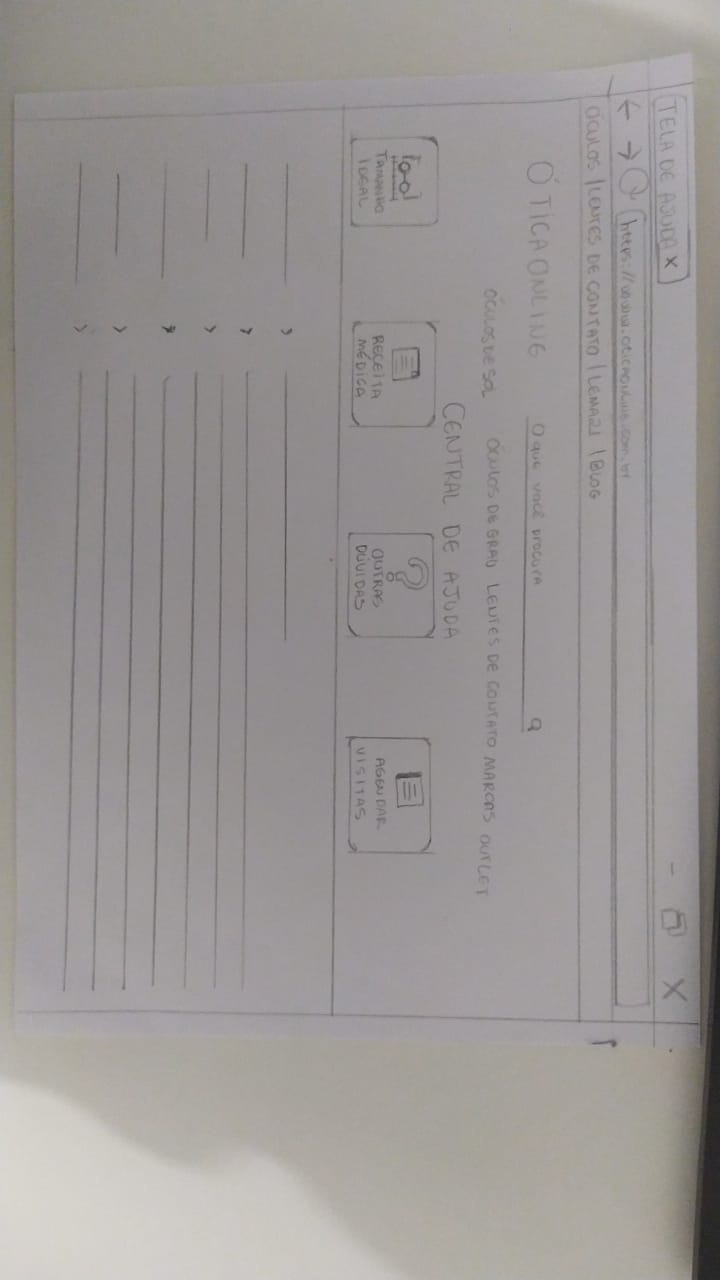 TELA DE AJUDA X
https://www.oticaonline.com.br
ÓCULOS | LENTES DE CONTATO | LEMA21 | BLOG
ÓTICA ONLINE
O que você procura
ÓCULOS DE SOL ÓCULOS DE GRAU LENTES DE CONTATO MARCAS OUTLET
CENTRAL DE AJUDA
TAMANHO
IDEAL
RECEITA
MÉDICA
?
OUTRAS
DÚVIDAS
AGENDAR
VISITAS